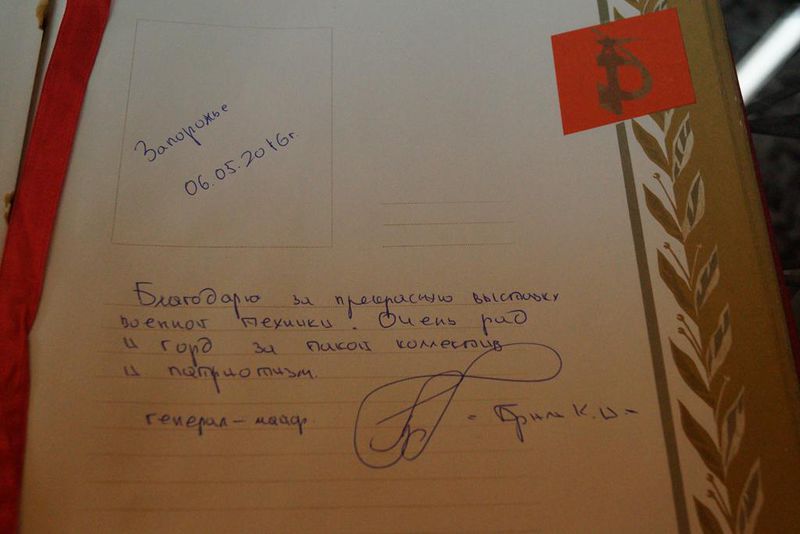 Запорожье
06.05.2016г.
Благодарю за прекрасную выставку
военной техники. Очень рад
и горд за такой коллектив
и патриотизм.
генерал-майор К.И.